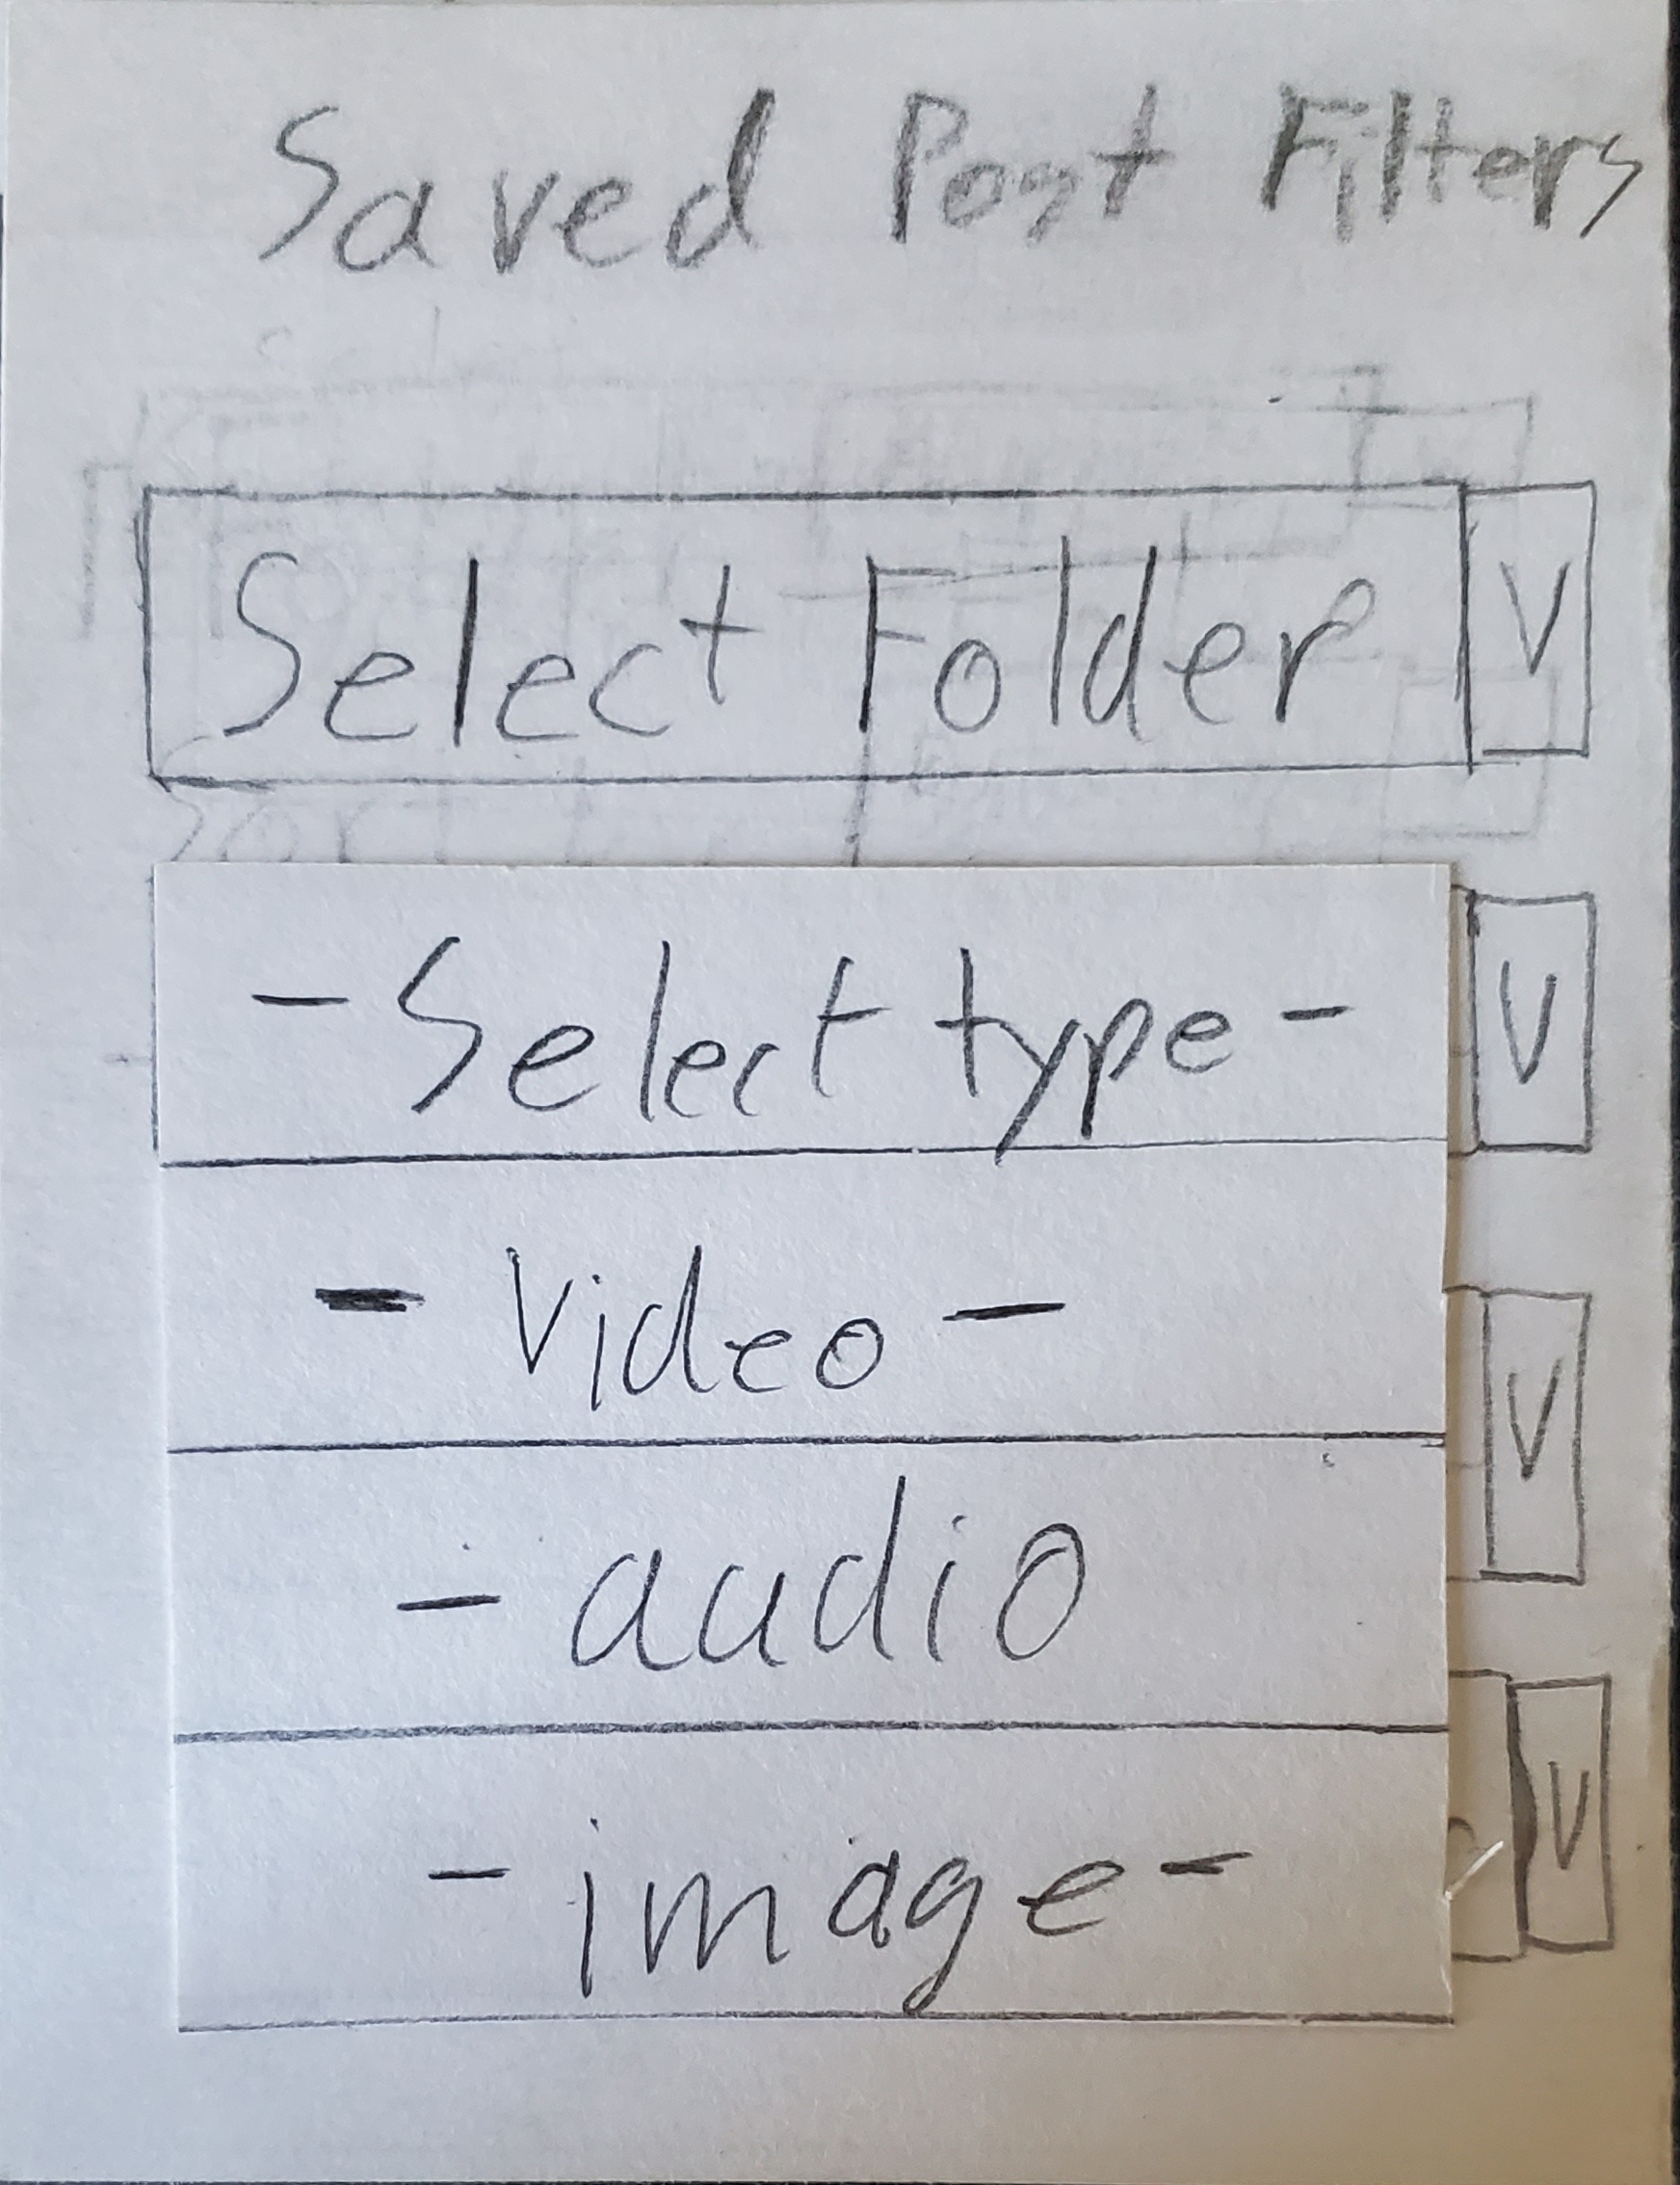 Saved Post Filters
Select Folder V
-Select type- V
- Video -
V
- audio
- image - V